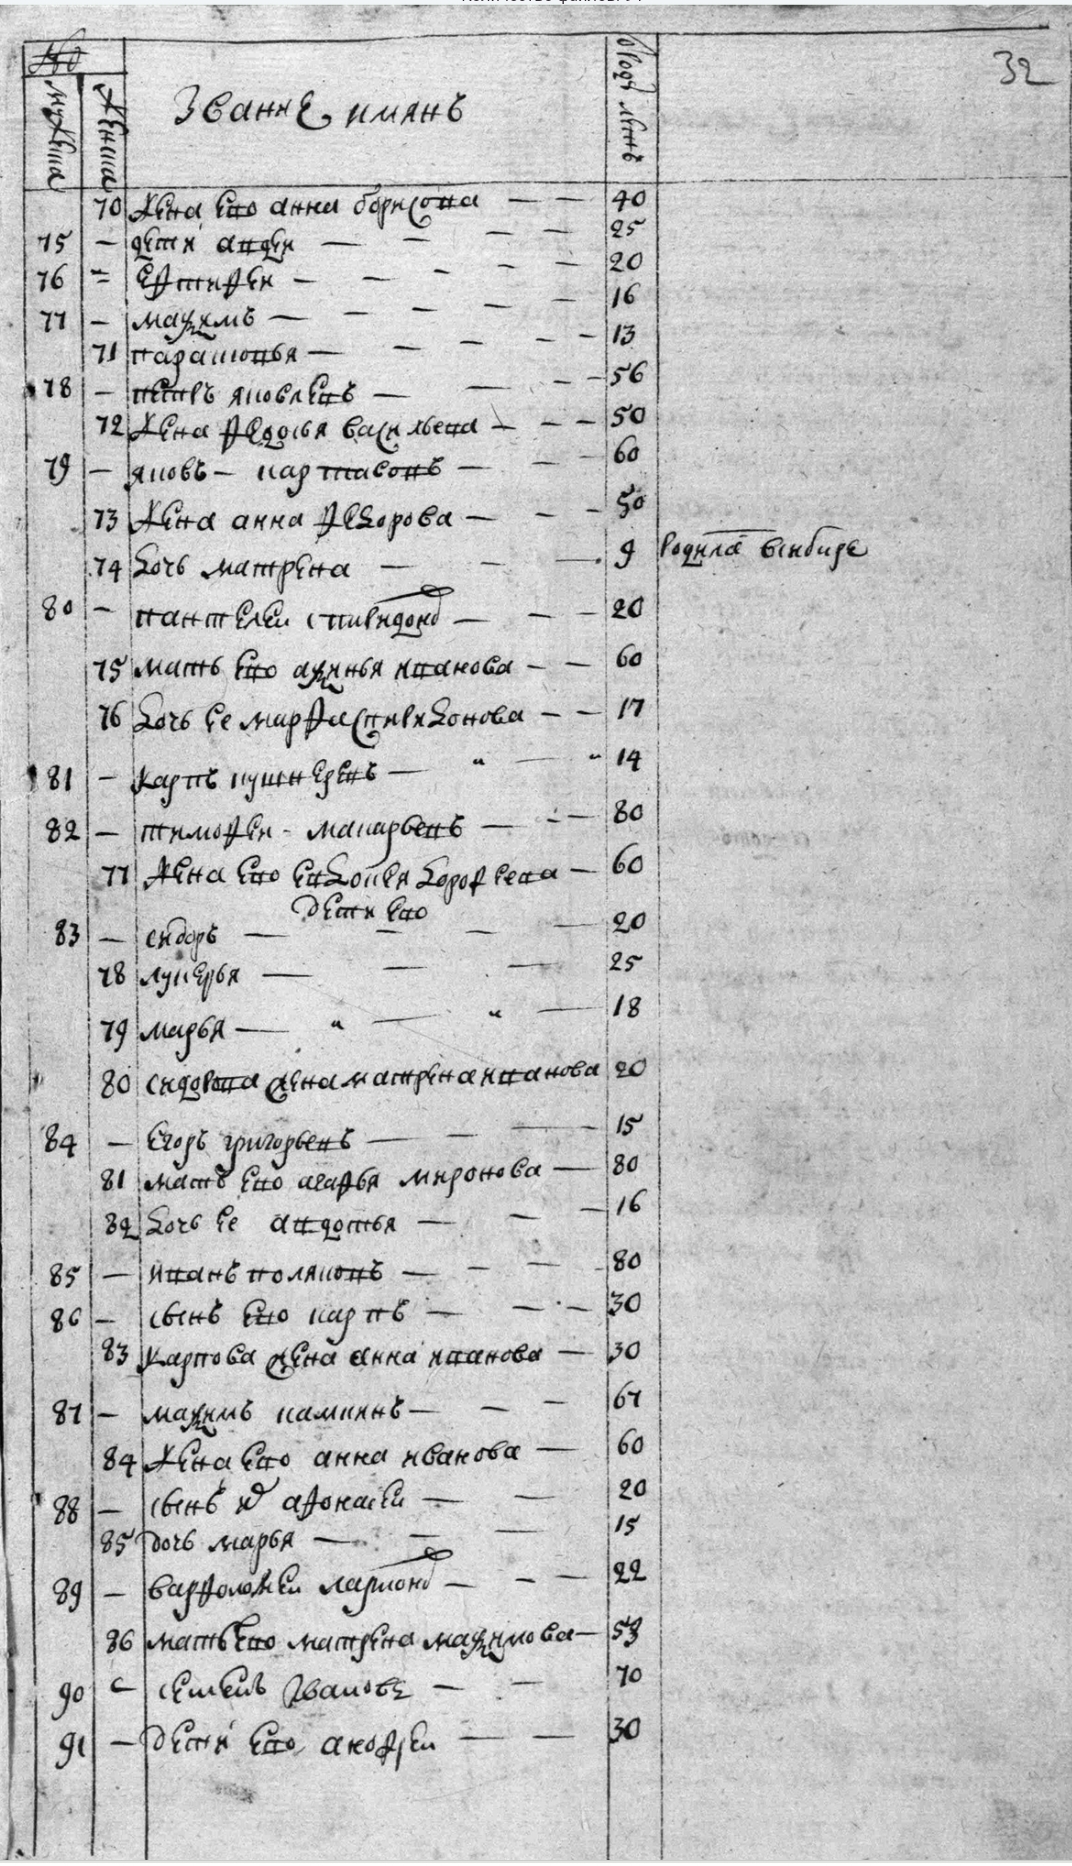 32
No
мужеска
женска
Звание имянъ
сколко отъ роду летъ
70 Жена ево анна борисова — — 40
75 — дети авдеи — — — — 25
76 = Ефтифеи — — — — — 20
77 — маѯимъ — — — — — 16
71 парасковья — — — — — 13
78 — петръ яковлевъ — — — — 56
72 Жена федосья васильева — — — 50
79 — яковъ — — — 60
73 Жена анна федорова — — — 50
74 дочь матрена — — — 9
80 — пантелеи спиридонов — — — 20
75 мать ево аѯинья иванова — — 60
76 дочь ее марфа спиридонова — — 17
81 — карпъ — 14
82 — тимофеи - макарьевъ — — — 80
77 Жена ево евдокея дорофеева — 60
дети ево
83 — сидоръ — — — — 20
78 лукерья — — — 25
79 марья — — — 18
80 сидорова жена матрена иванова 20
84 — Егоръ григорьевъ — — — 15
81 мать ево агафья миронова — 80
82 дочь ее авдотья — — — 16
85 — иванъ поляковъ — — — 80
86 — сынъ ево карпъ — — — 30
83 карпова жена анна иванова — 30
87 — маѯимъ — — — 67
84 Жена ево анна иванова — 60
88 — сынъ афонасеи — — 20
85 дочь марья — — — 15
89 — варфоломеи ларионов — — — 22
86 мать ево матрена маѯимова — 53
90 — семенъ Ивановъ — — 70
91 — дети ево, андреи — — — 30